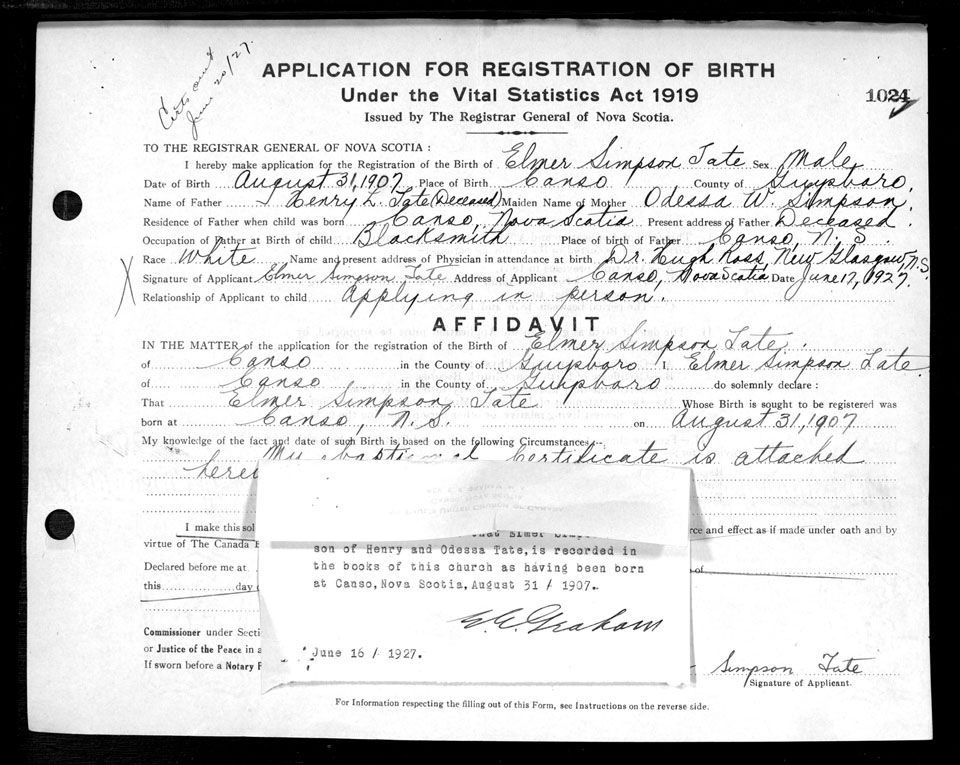 Certs sent
June 20/27.
APPLICATION FOR REGISTRATION OF BIRTH
Under the Vital Statistics Act 1919
1024
Issued by The Registrar General of Nova Scotia.
TO THE REGISTRAR GENERAL OF NOVA SCOTIA :
I hereby make application for the Registration of the Birth of Elmer Simpson Tate Sex Male
Date of Birth August 31, 1907 Place of Birth Canso County of Guysboro.
Name of Father Henry L. Tate (Deceased) Maiden Name of Mother Odessa W. Simpson.
Residence of Father when child was born Canso, Nova Scotia Present address of Father Deceased
Occupation of Father at Birth of child Blacksmith Place of birth of Father Canso, N. S.
Race White Name and present address of Physician in attendance at birth Dr. Hugh Ross, New Glasgow, N.S.
Signature of Applicant Elmer Simpson Tate Address of Applicant Canso, Nova Scotia Date June 17, 1927.
Relationship of Applicant to child Applying in person.
AFFIDAVIT
IN THE MATTER of the application for the registration of the Birth of Elmer Simpson Tate.
of Canso in the County of Guysboro I Elmer Simpson Tate.
of Canso in the County of Guysboro do solemnly declare :
That Elmer Simpson Tate Whose Birth is sought to be registered was
born at Canso, N. S. on August 31, 1907
My knowledge of the fact and date of such Birth is based on the following Circumstances
My baptismal Certificate is attached
I make this sol rce and effect as if made under oath and by
virtue of The Canada E
Declared before me at of
this day
that Elmer Simps
son of Henry and Odessa Tate, is recorded in
the books of this church as having been born
at Canso, Nova Scotia, August 31 / 1907.
Graham
June 16 / 1927.
Commissioner under Secti
or Justice of the Peace in a
If sworn before a Notary P
Simpson Tate
Signature of Applicant.
For Information respecting the filling out of this Form, see Instructions on the reverse side.